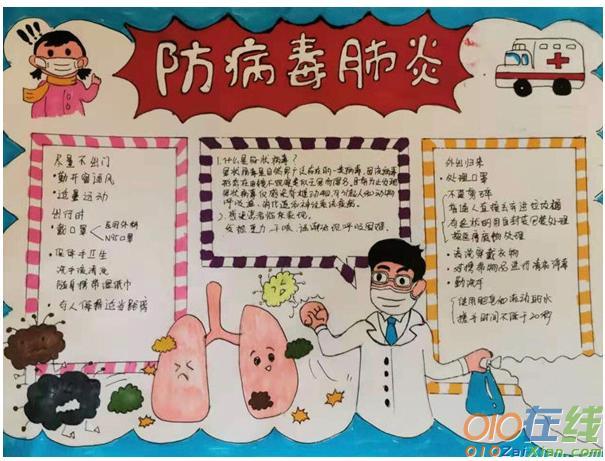 防病毒肺炎
尽量不出门
勤开窗通风
适量运动
出行时
戴口罩
医用外科
N95口罩
保持手卫生
洗手液清洗
随身携带湿纸巾
与人保持适当距离
1.什么是冠状病毒?
2.感染患者临床表现。
发热、乏力、干咳、逐渐出现呼吸困难。
外出归来
处理口罩
不要剪碎
有进入直接丢弃垃圾桶
按医疗废物处理
清洗穿戴衣物
对携带物品进行清洁消毒
勤洗手
使用肥皂和流动的水
洗手时间不低于20秒
010在线
010ZaiXian.com